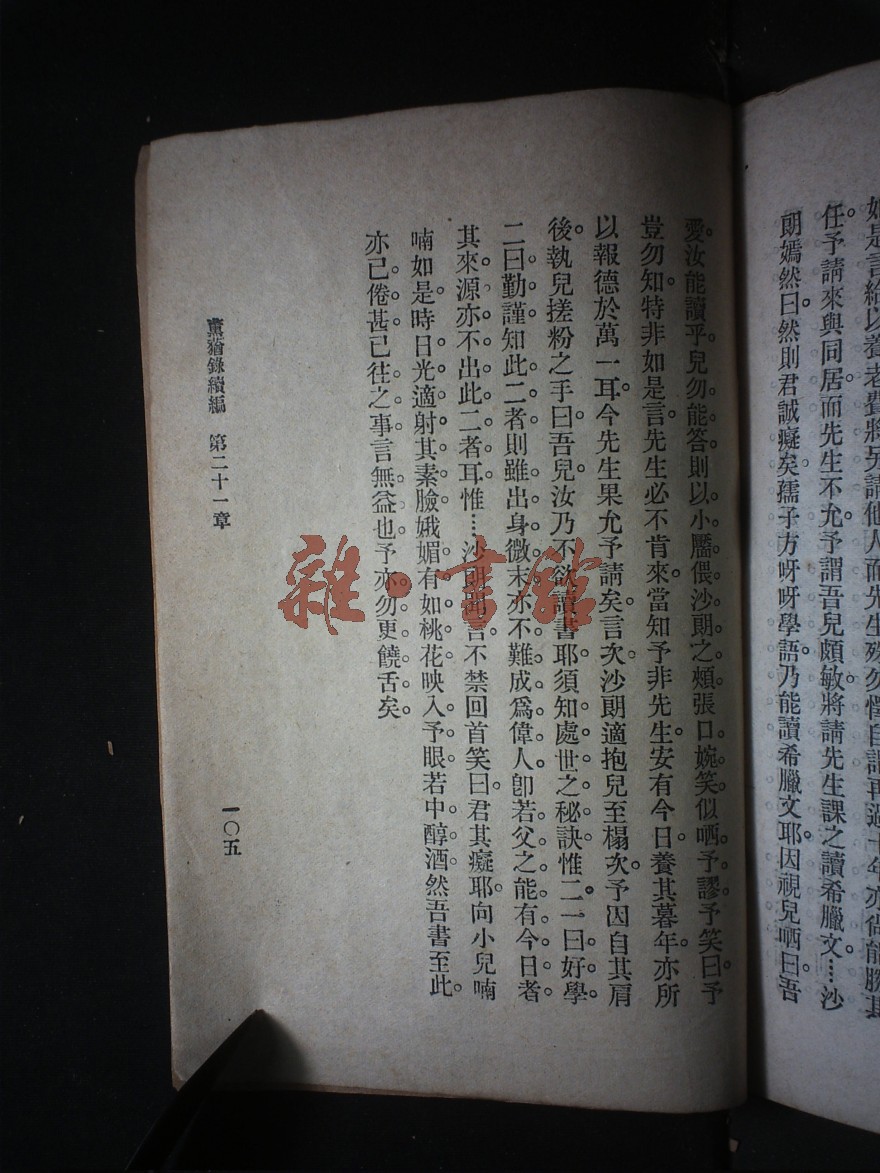 是言給以養老費將另請他人而先生殊勿懌自謂再過十年亦尙能勝其
任予請來與同居而先生不允予謂吾兒頗敏將請先生課之讀希臘文……沙
朗嫣然曰然則君誠癡矣孺子方呀呀學語乃能讀希臘文耶因視兒哂曰吾
愛汝能讀乎兒勿能答則以小靨偎沙朗之頰張口婉笑似哂予謬予笑曰予
豈勿知特非如是言先生必不肯來當知予非先生安有今日養其暮年亦所
以報德於萬一耳今先生果允予請矣言次沙朗適抱兒至榻次予因自其肩
後執兒搓粉之手曰吾兒汝乃不欲讀書耶須知處世之秘訣惟二一曰好學
二曰勤謹知此二者則雖出身微末亦不難成爲偉人卽若父之能有今日者
其來源亦不出此二者耳惟……沙朗聞言不禁回首笑曰君其癡耶向小兒喃
喃如是時日光適射其素臉娥媚有如桃花映入予眼若中醇酒然吾書至此
亦已倦甚已往之事言無益也予亦勿更饒舌矣
薰蕕錄續編 第二十一章 一〇五
雜·書館